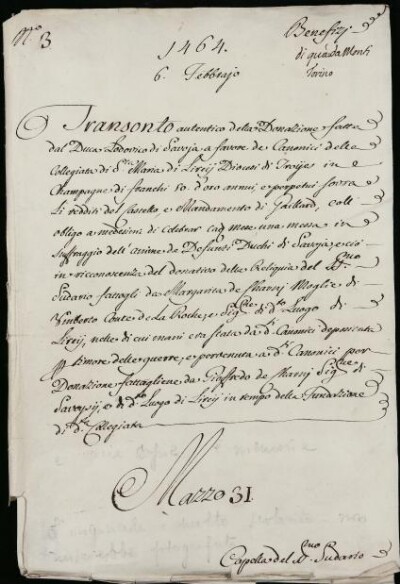 N.o 3
1464.
6. Febbrajo
Benefizj
di quà da Monti
Torino
Transonto autentico della Donazione fatta
dal Duca Lodovico di Savoja a favore de Canonici della
Collegiata di S.ta Maria di Lirej Diocesi di Troijes in
Champagne di franchi 50. d'oro annui, e perpetui sovra
li redditi del Castello, e Mandamento di Gaillard, coll'
obligo a medesimi di celebrar cad. mese una messa in
suffraggio dell'anime de Defunti Duchi di Savoja, e ciò
in riconoscenza del donativo della Reliquia del SS.mo
Sudario fattagli da Margarita de Charnj Moglie di
Umberto Conte de La Roche, e Sig.re di d.to Luogo di
Lirej, nelle di cui mani era stata da d.i Canonici depositata
timore delle guerre, e pervenuta a d.i Canonici per
Donazione fattagliene da Gioffredo de Charnj Sig.re di
Savojsij, e di d.to Luogo di Lirej in tempo della Fundazione
di d.ta Collegiata
Mazzo 31
Capella del SS.mo Sudario